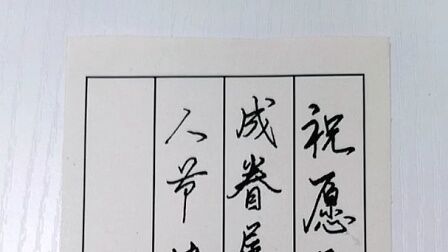 祝愿
成眷
人节